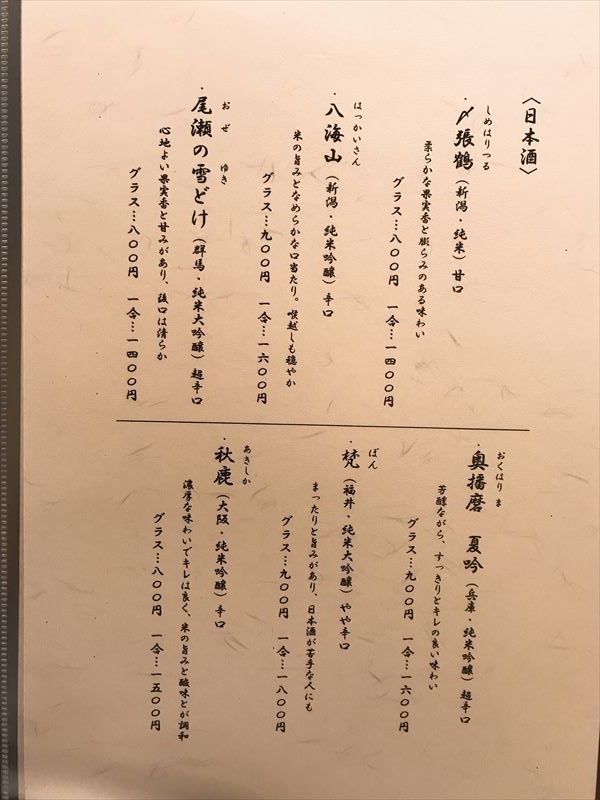 〈日本酒〉
しめはりつる
・〆張鶴（新潟・純米）甘口
柔らかな果実香と膨らみのある味わい
グラス…八〇〇円 一合…一四〇〇円
はっかいさん
・八海山（新潟・純米吟醸）辛口
米の旨みとなめらかな口当たり。喉越しも穏やか
グラス…九〇〇円 一合…一六〇〇円
おぜ ゆき
・尾瀬の雪どけ（群馬・純米大吟醸）超辛口
心地よい果実香と甘みがあり、後口は清らか
グラス…八〇〇円 一合…一四〇〇円
おくはりま
・奥播磨 夏吟（兵庫・純米吟醸）超辛口
芳醇ながら、すっきりとキレの良い味わい
グラス…九〇〇円 一合…一六〇〇円
ぼん
・梵（福井・純米大吟醸）やや辛口
まったりと旨みがあり、日本酒が苦手な人にも
グラス…九〇〇円 一合…一八〇〇円
あきしか
・秋鹿（大阪・純米吟醸）辛口
濃厚な味わいでキレは良く、米の旨みと酸味とが調和
グラス…八〇〇円 一合…一五〇〇円